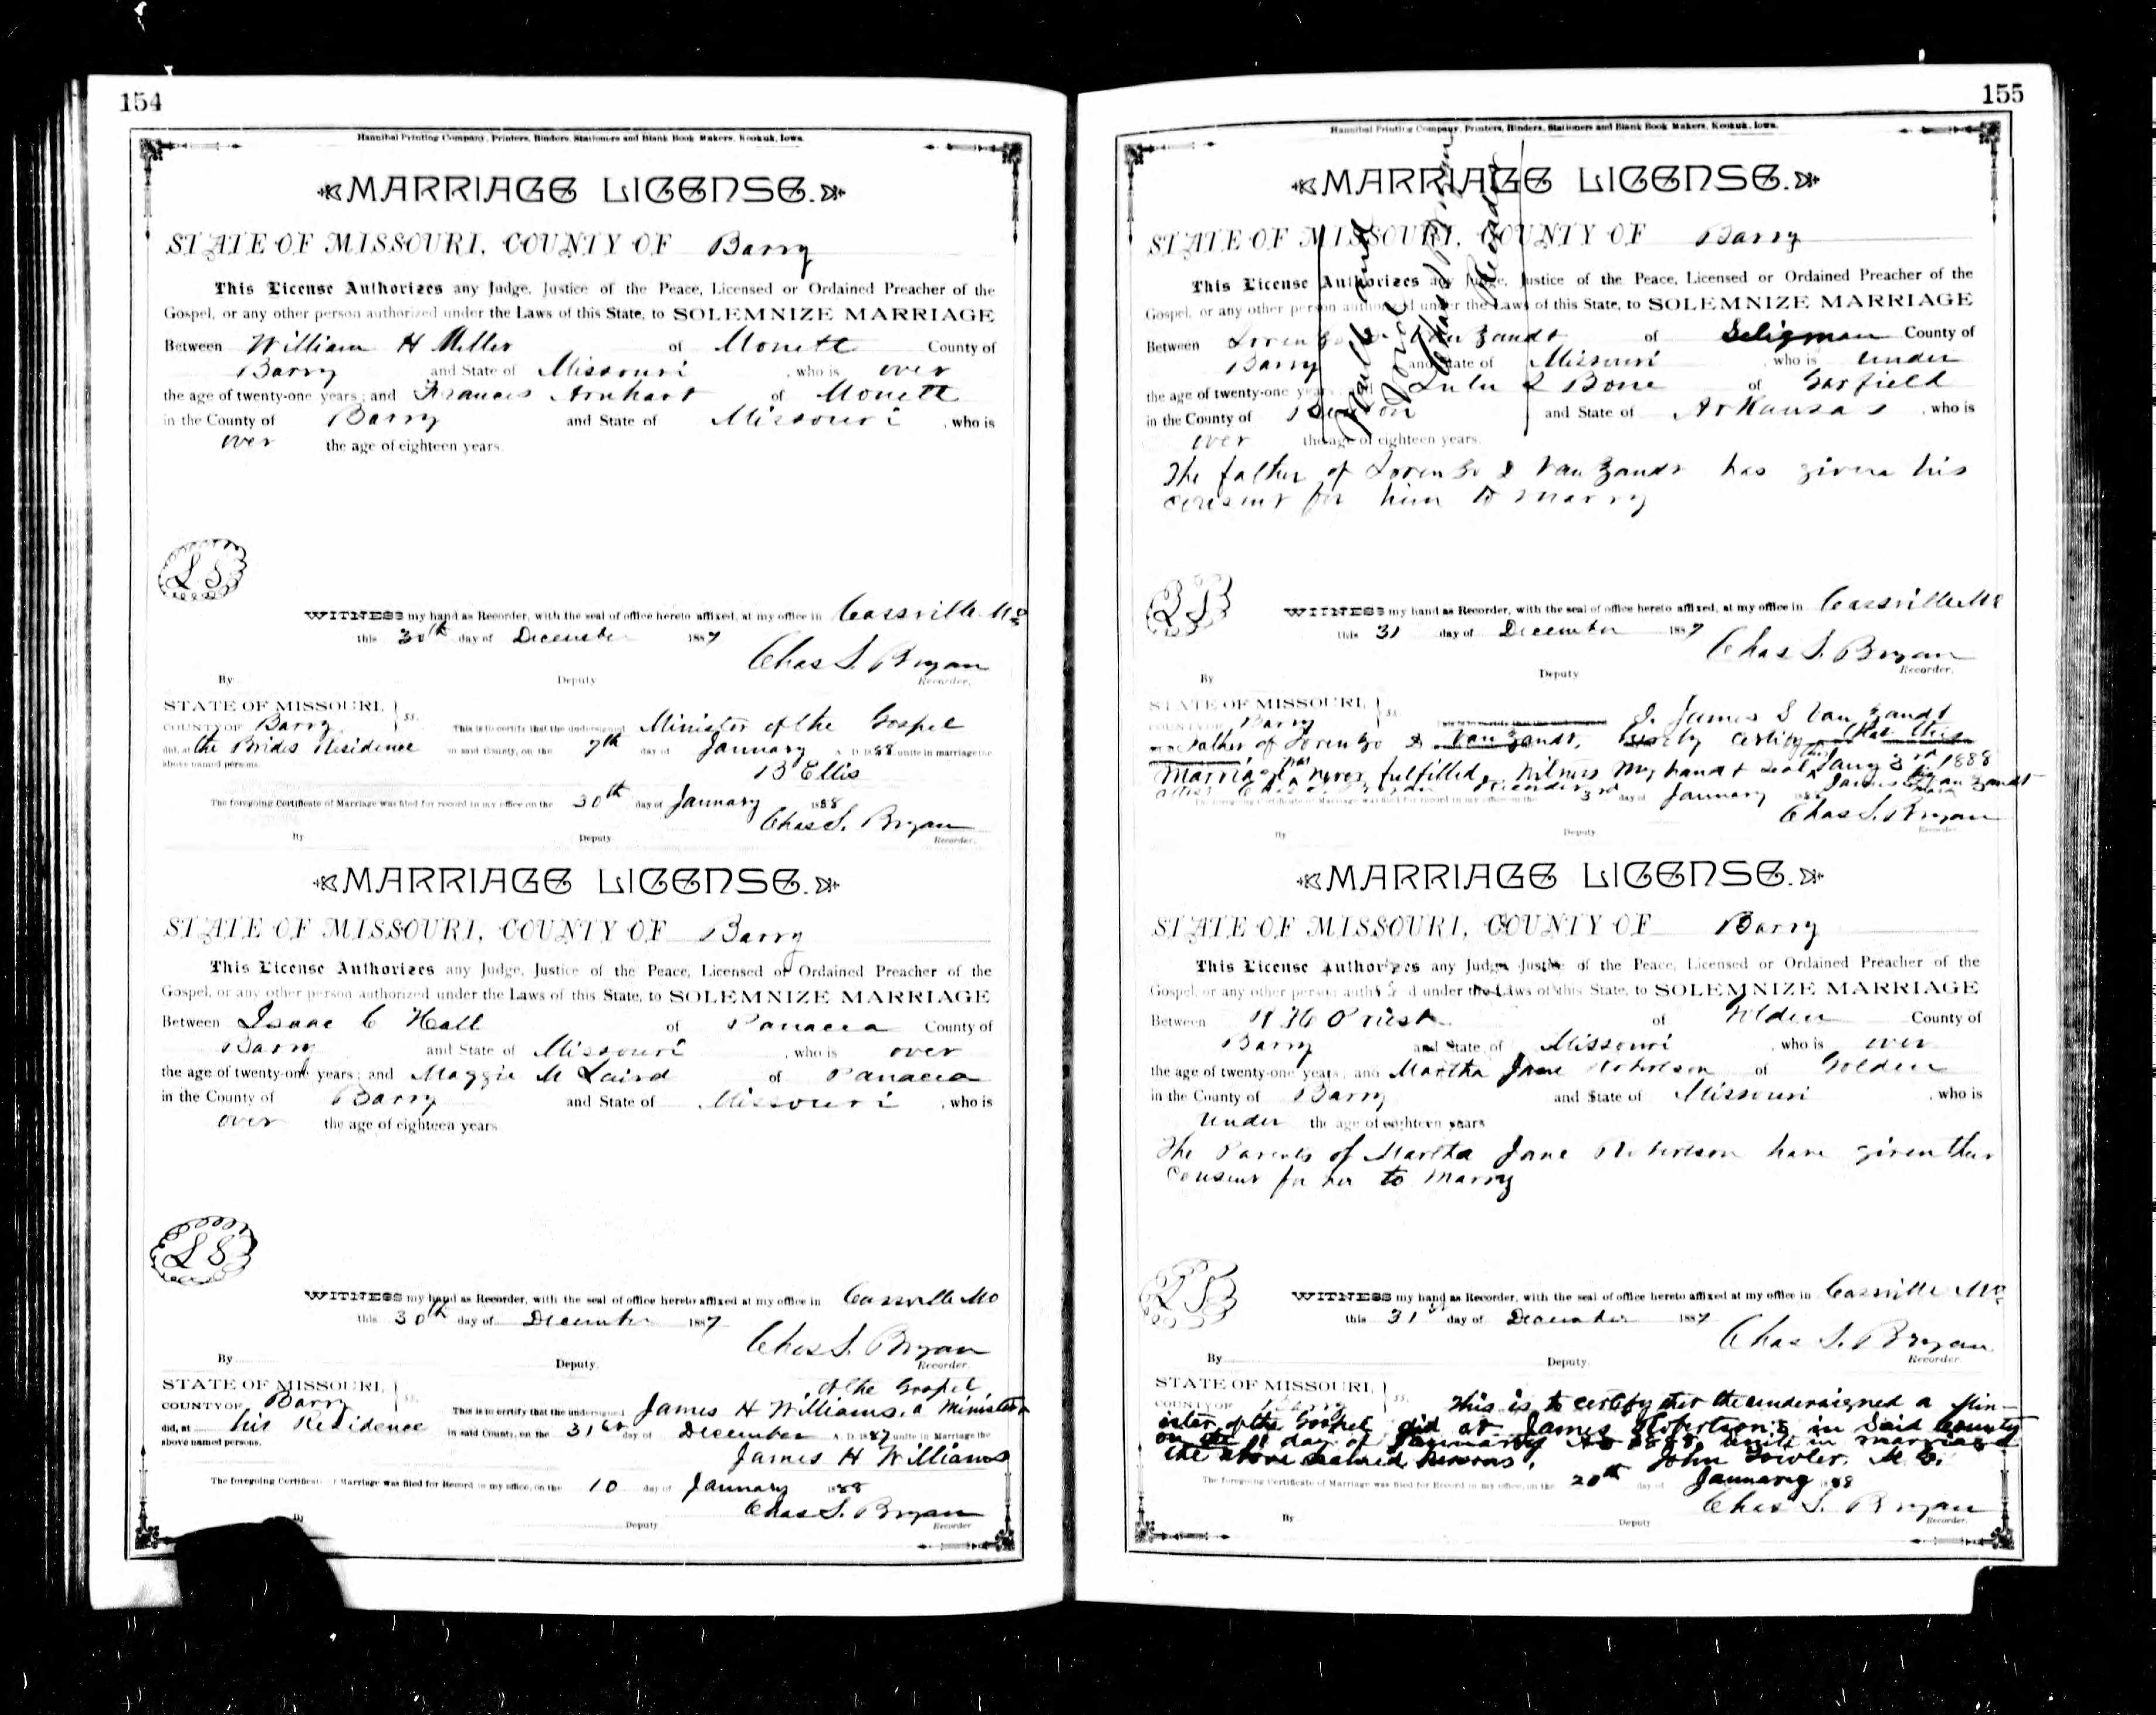 154
Hannibal Printing Company, Printers, Binders, Stationers and Blank Book Makers, Keokuk, Iowa.
MARRIAGE LICENSE.
STATE OF MISSOURI, COUNTY OF Barry
This License Authorizes any Judge, Justice of the Peace, Licensed or Ordained Preacher of the
Gospel, or any other person authorized under the Laws of this State, to SOLEMNIZE MARRIAGE
Between William H Miller of Monett County of
Barry and State of Missouri, who is over
the age of twenty-one years; and Frances Arnhart of Monett
in the County of Barry and State of Missouri, who is
over the age of eighteen years.
LS
WITNESS my hand as Recorder, with the seal of office hereto affixed, at my office in Cassville Mo
this 30th day of December 1887
Chas S. Bryan
By Deputy Recorder.
STATE OF MISSOURI,
COUNTY OF Barry ss. This is to certify that the undersigned Minister of the Gospel
did, at the Brides Residence in said County, on the 7th day of January A. D. 1888 unite in marriage the
above named persons.
B Ellis
The foregoing Certificate of Marriage was filed for record in my office on the 30th day of January 1888
Chas S. Bryan
By Deputy Recorder.
MARRIAGE LICENSE.
STATE OF MISSOURI, COUNTY OF Barry
This License Authorizes any Judge, Justice of the Peace, Licensed or Ordained Preacher of the
Gospel, or any other person authorized under the Laws of this State, to SOLEMNIZE MARRIAGE
Between Isaac C Hall of Panacea County of
Barry and State of Missouri, who is over
the age of twenty-one years; and Maggie M Laird of Panacea
in the County of Barry and State of Missouri, who is
over the age of eighteen years
LS
WITNESS my hand as Recorder, with the seal of office hereto affixed at my office in Cassville Mo
this 30th day of December 1887
Chas S. Bryan
By Deputy. Recorder.
STATE OF MISSOURI,
of the Gospel
COUNTY OF Barry ss. This is to certify that the undersigned James H Williams, a Minister
did, at his Residence in said County, on the 31st day of December A. D. 1887 unite in Marriage the
above named persons.
James H Williams
The foregoing Certificate of Marriage was filed for Record in my office, on the 10 day of January 1888
Chas S. Bryan
By Deputy Recorder
155
Hannibal Printing Company, Printers, Binders, Stationers and Blank Book Makers, Keokuk, Iowa.
MARRIAGE LICENSE.
STATE OF MISSOURI, COUNTY OF Barry
This License Authorizes any Judge, Justice of the Peace, Licensed or Ordained Preacher of the
Gospel, or any other person authorized under the Laws of this State, to SOLEMNIZE MARRIAGE
Between Lorenzo Van Zandt of Seligman County of
Barry and State of Missouri, who is under
the age of twenty-one years Lulu L Bone of Garfield
in the County of Benton and State of Arkansas, who is
over the age of eighteen years.
Null and
Void
Chas S Bryan
Recorder
The father of Lorenzo D Van Zandt has given his
consent for him to marry
LS
WITNESS my hand as Recorder, with the seal of office hereto affixed, at my office in Cassville Mo
this 31 day of December 1887
Chas S. Bryan
By Deputy Recorder.
STATE OF MISSOURI,
COUNTY OF Barry ss. I, James S Van Zandt
Father of Lorenzo D Van Zandt, hereby certify that this
Marriage was never fulfilled, Witness my hand & seal this Jany 3rd 1888
Attest Chas S. Bryan Recorder James his mark Van Zandt
The foregoing Certificate of Marriage was filed for record in my office on the 3rd day of January 1888
Chas S. Bryan
By Deputy Recorder.
MARRIAGE LICENSE.
STATE OF MISSOURI, COUNTY OF Barry
This License Authorizes any Judge, Justice of the Peace, Licensed or Ordained Preacher of the
Gospel, or any other person authorized under the Laws of this State, to SOLEMNIZE MARRIAGE
Between H Priest of Golden County of
Barry and State of Missouri, who is over
the age of twenty-one years, and Martha Jane Robertson of Golden
in the County of Barry and State of Missouri, who is
under the age of eighteen years
The Parents of Martha Jane Robertson have given their
consent for her to marry
LS
WITNESS my hand as Recorder, with the seal of office hereto affixed at my office in Cassville Mo
this 31st day of December 1887
Chas S. Bryan
By Deputy. Recorder.
STATE OF MISSOURI,
COUNTY OF Barry ss. This is to certify that the undersigned a Min-
ister of the Gospel did at James Robertson's in said County
on the 1 day of January AD 1888, unite in marriage
the above named persons. John Fowler, M G.
The foregoing Certificate of Marriage was filed for Record in my office, on the 20th day of January 1888
Chas S. Bryan
By Deputy Recorder.